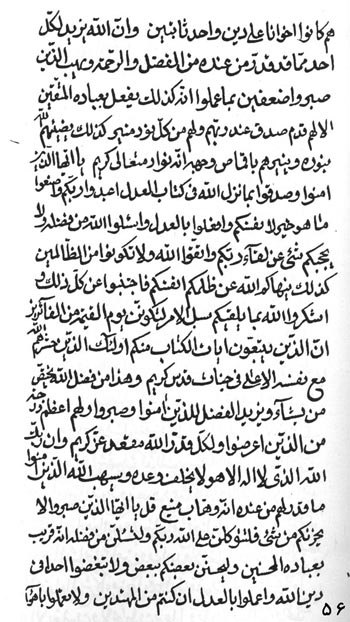 هم كانوا اخوانا على دين واحد ثابتين وان الله يزيد لكل
احد مما قد قدر من عنده من الفضل والرحمة ويهب الذين
صبروا ضعفين بما عملوا انه كذلك يفعل بعباده المتقين
الا لهم قدم صدق عند ربهم ولهم من كل نور منير كذلك يضيئهم الله
بنوره وينيرهم باقماص وجهه انه نوار متعالى كريم يا ايها الذين
امنوا وصدقوا بما نزل الله فى كتاب العدل اعبدوا ربكم وافعلوا
ما هو خير لانفسكم وافعلوا بالعدل واسئلوا الله من فضله ولا
يحجبكم شئ عن لقاء ربكم واتقوا الله ولا تكونوا من الظالمين
كذلك ينهاكم الله عن ظلمكم انفسكم فاجتنبوا عن كل ذلك و
اشكروا الله بما يلقيكم سبل الامر لتكونن يوم القيمة من الفائزين
ان الذين يتبعون ايات الكتاب منكم اولئك الذين يحشرهم الله
مع نفسه الاعلى فى جنات قدس كريم وهذا من فضل الله يختص
من يشاء ويزيد الفضل للذين امنوا وصبروا ولهم اعظم درجة
من الذين اعرضوا ولكل قد قدر الله مقعد عز كريم وان ربك
الله الذى لا اله الا هو لا يخلف وعده وسيهب الله الذين امنوا
ما قدر لهم من عنده انه وهاب منيع قل يا ايها الذين صبروا لا
يحزنكم من شئ فلتتوكلن على الله ربكم ولتسئلن من فضله انه قريب
بعباده المحسنين وليحبن بعضكم ببعض ولا تبغضوا احدا فى
دين الله واعملوا بالعدل ان كنتم من المهتدين ولا تعملوا باهوا
۵۶